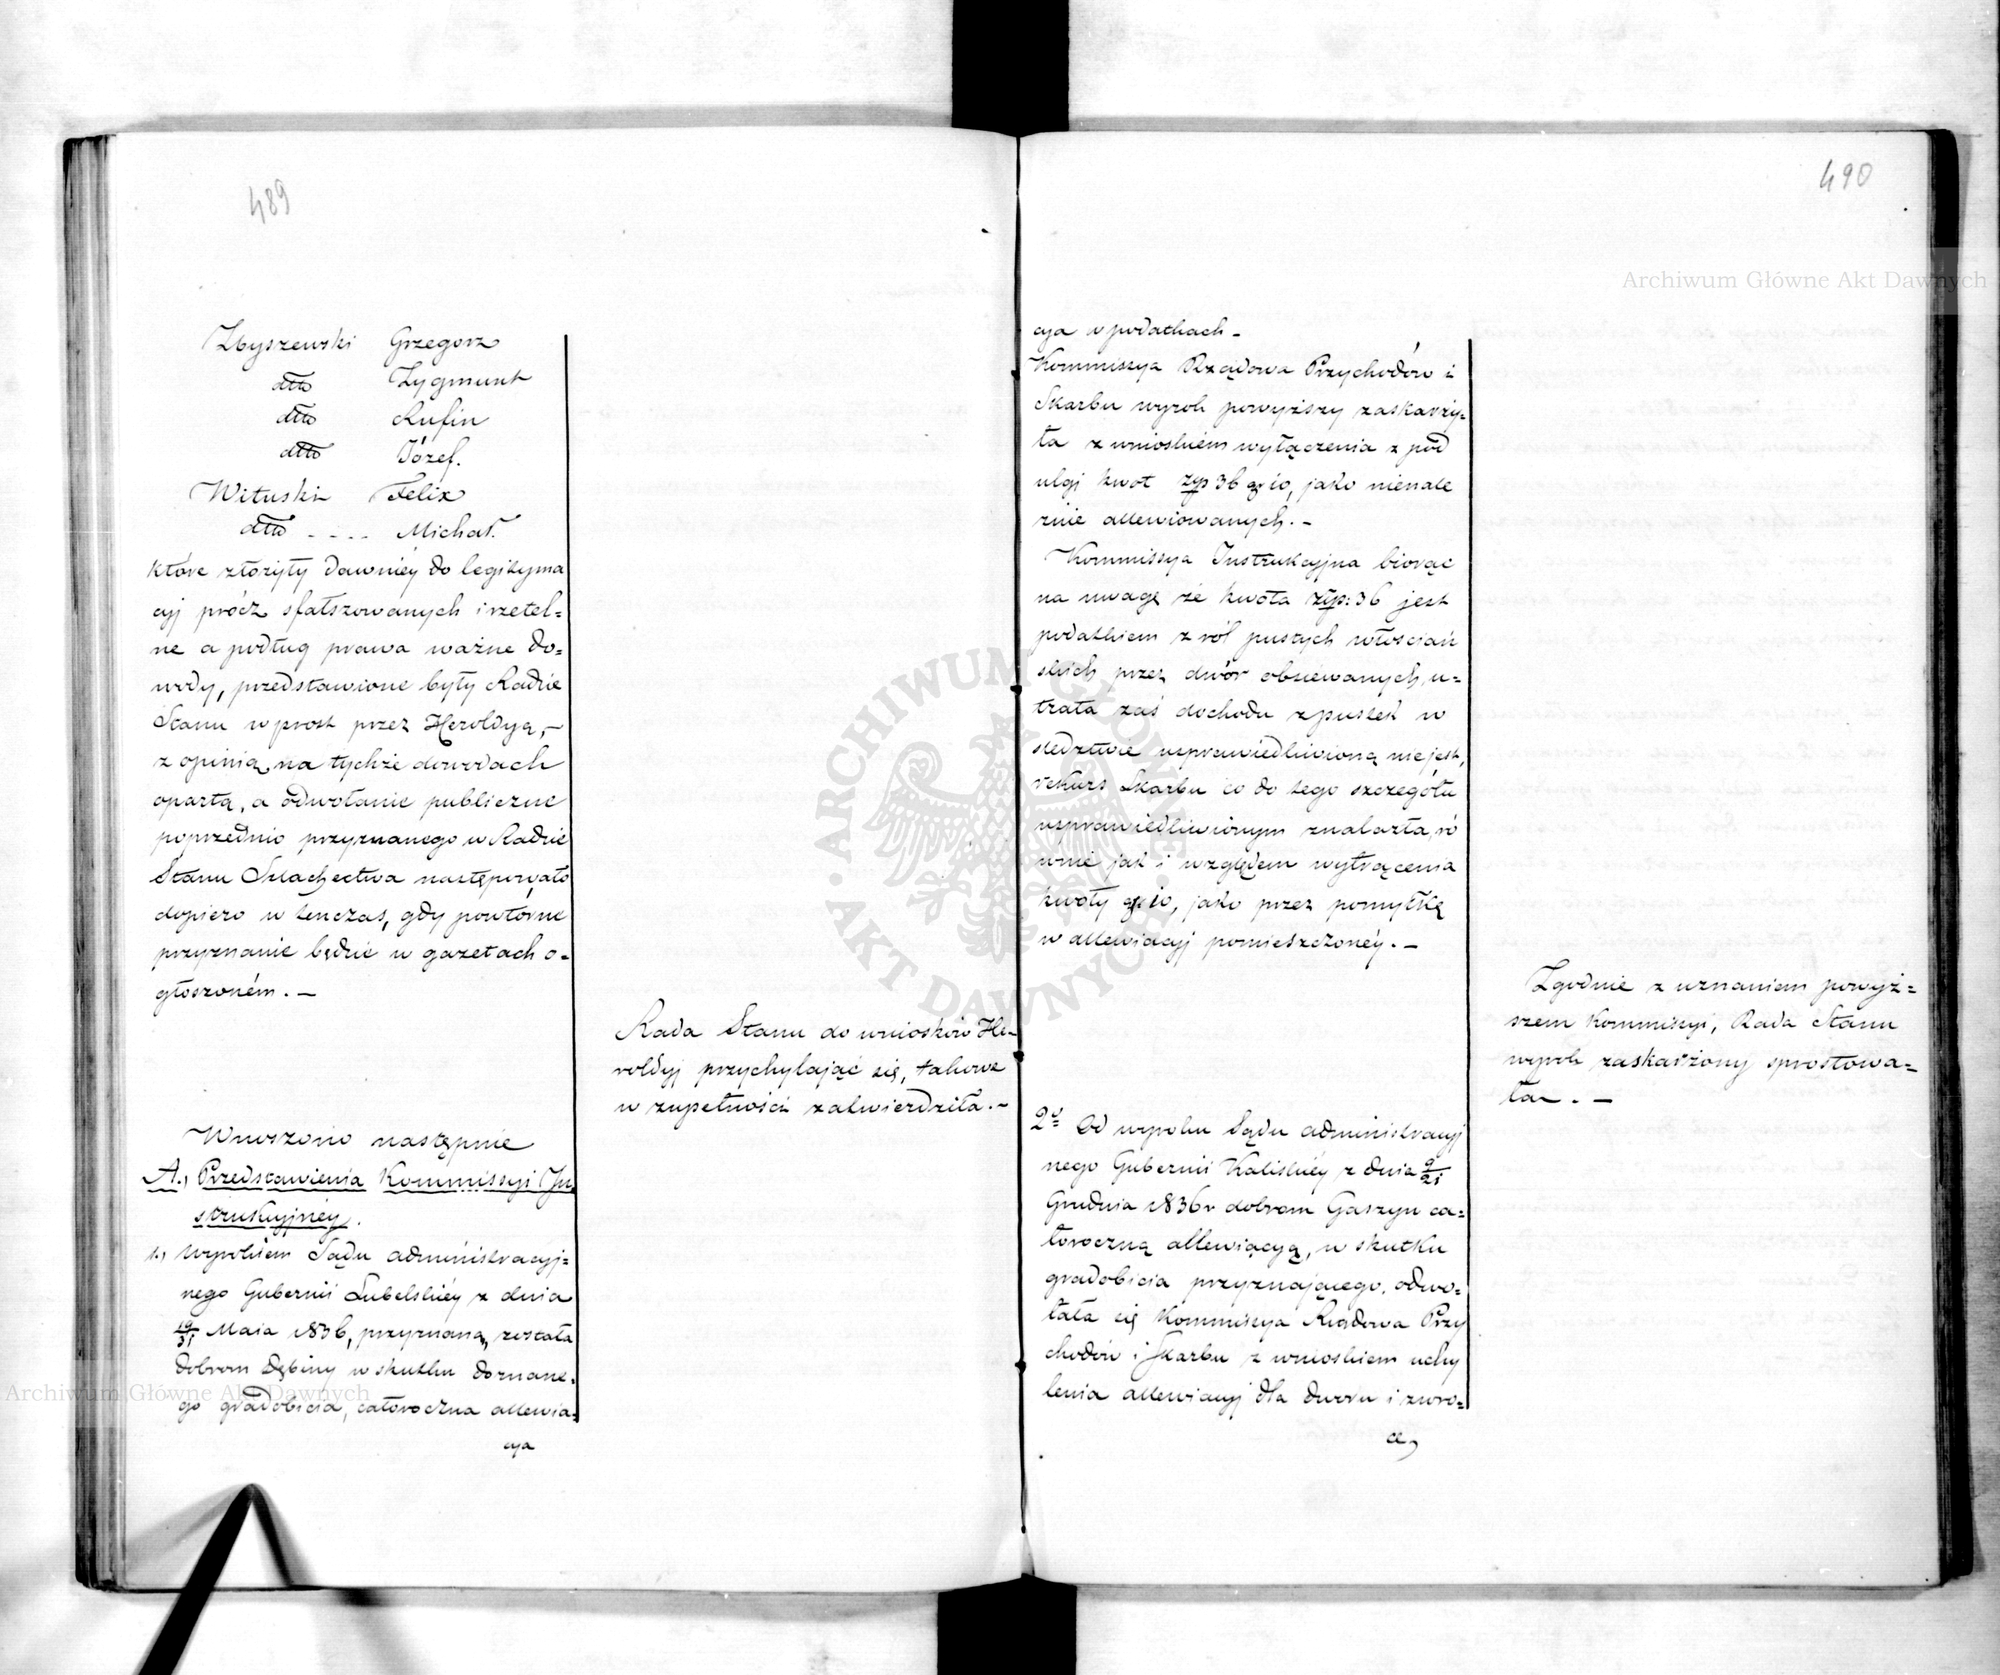 489
Zbyszewski Grzegorz
dtto Zygmunt
dtto Rufin
dtto Józef.
Wituski Felix
dtto - - - - Michał.
które złożyły dawniéy do legityma
cyj prócz sfałszowanych i rzetel=
ne a podług prawa ważne do=
wody, przedstawione były Radzie
Stanu wprost przez Heroldyą, –
z opinią na tychże dowodach
opartą, a odwołanie publiczne
poprzednio przyznanego w Radzie
Stanu Szlachectwa następowało
dopiero w tenczas, gdy powtórne
przyznanie będzie w gazetach o=
głoszoném. –
Rada Stanu do wniosków He=
roldyj przychylając się, takowe
w zupełności zatwierdziła. –
Wnoszono następnie
A., Przedstawienia Kommissyi In
strukcyjnéy.
1., Wyrokiem Sądu administracyj=
nego Gubernii Lubelskiéy z dnia
19/31 Maia 1836, przyznaną została
dobrom Dębiny w skutku doznane=
go gradobicia, całoroczna allewia=
cya
490
cya w podatkach –
Kommissya Rządowa Przychodów i
Skarbu wyrok powyższy zaskarży=
ła z wnioskiem wyłączenia z pod
ulgi kwot złp 36 gr 10, jako nienale
żnie allewiowanych. –
Kommissya Instrukcyjna biorąc
na uwagę że kwota złp: 36 jest
podatkiem z ról pustych włościań
skich przez dwór obsiewanych, u=
trata zaś dochodu z pustek w
śledztwie usprawiedliwioną nie jest,
rekurs Skarbu co do tego szczegółu
usprawiedliwionym znalazła, ró
wnie jak i względem wytrącenia
kwoty gr 10, jako przez pomyłkę
w allewiacyj pomieszczonéy. –
Zgodnie z uznaniem powyż=
szem Kommissyi, Rada Stanu
wyrok zaskarżony sprostowa=
ła. –
2o Od wyroku Sądu administracyj
nego Gubernii Kaliskiéy z dnia 9/21
Grudnia 1836 r dobrom Gaszyn ca=
łoroczną allewiącyą, w skutku
gradobicia przyznającego, odwo=
łała się Kommissya Rządowa Przy
chodów i Skarbu z wnioskiem uchy
lenia allewiacyj dla dworu i zwró=
ce,
Archiwum Główne Akt Dawnych
Archiwum Główne Akt Dawnych
ARCHIWUM GŁÓWNE AKT DAWNYCH